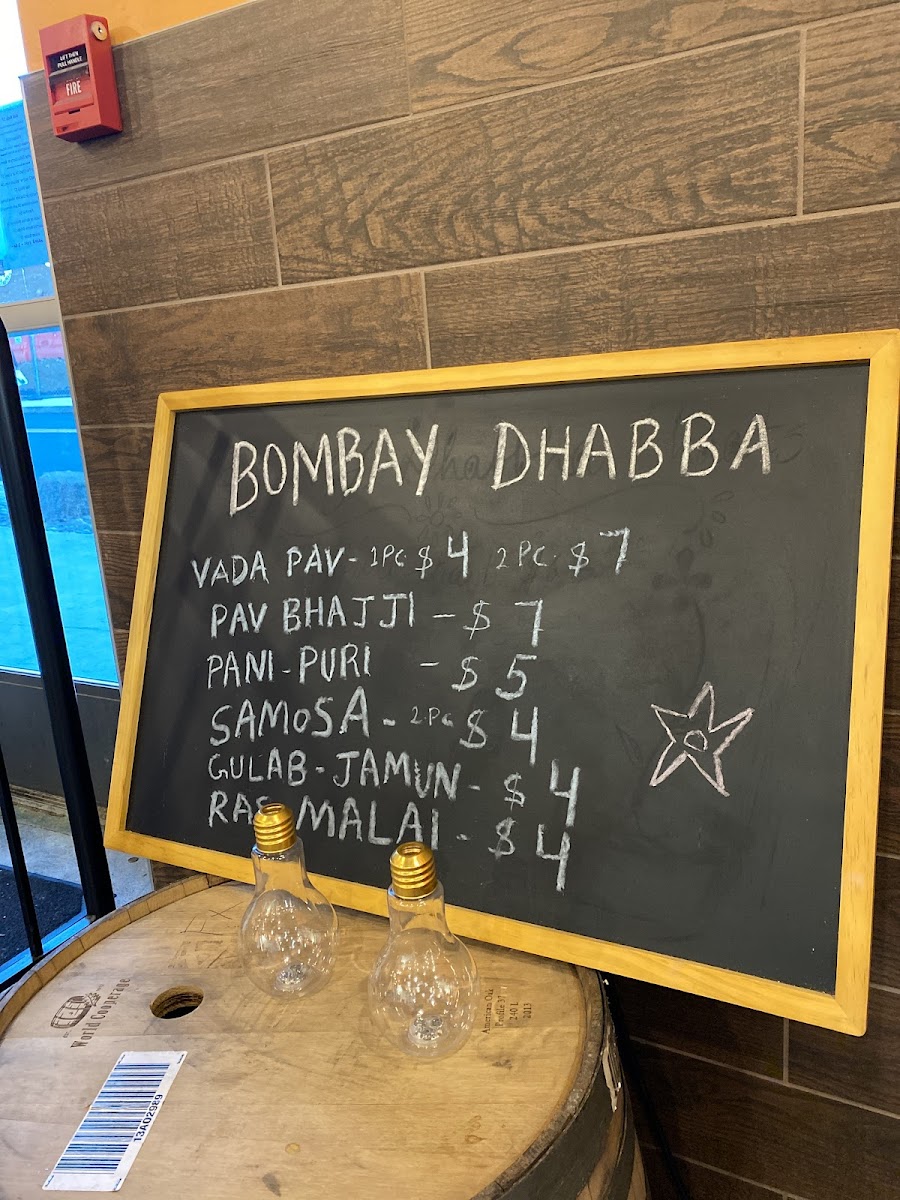 LIFT THEN
PULL HANDLE
FIRE
BOMBAY DHABBA
VADA PAV - 1PC $4 2PC. $7
PAV BHAJJI - $7
PANI-PURI - $5
SAMOSA - 2.PC $4
GULAB-JAMUN - $4
RAS MALAI - $4
World Cooperage
American Oak
Profile 37
240 L
2013
13A02989